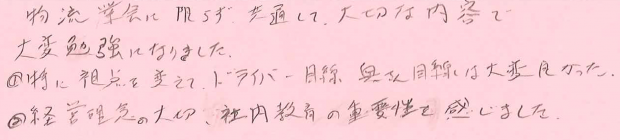 物流業界に限らず共通して、大切な内容で
大変勉強になりました。
①特に視点を変えて、ドライバー目線 奥さん目線は大変良かった。
②経営理念の大切、社内教育の重要性を感じました。